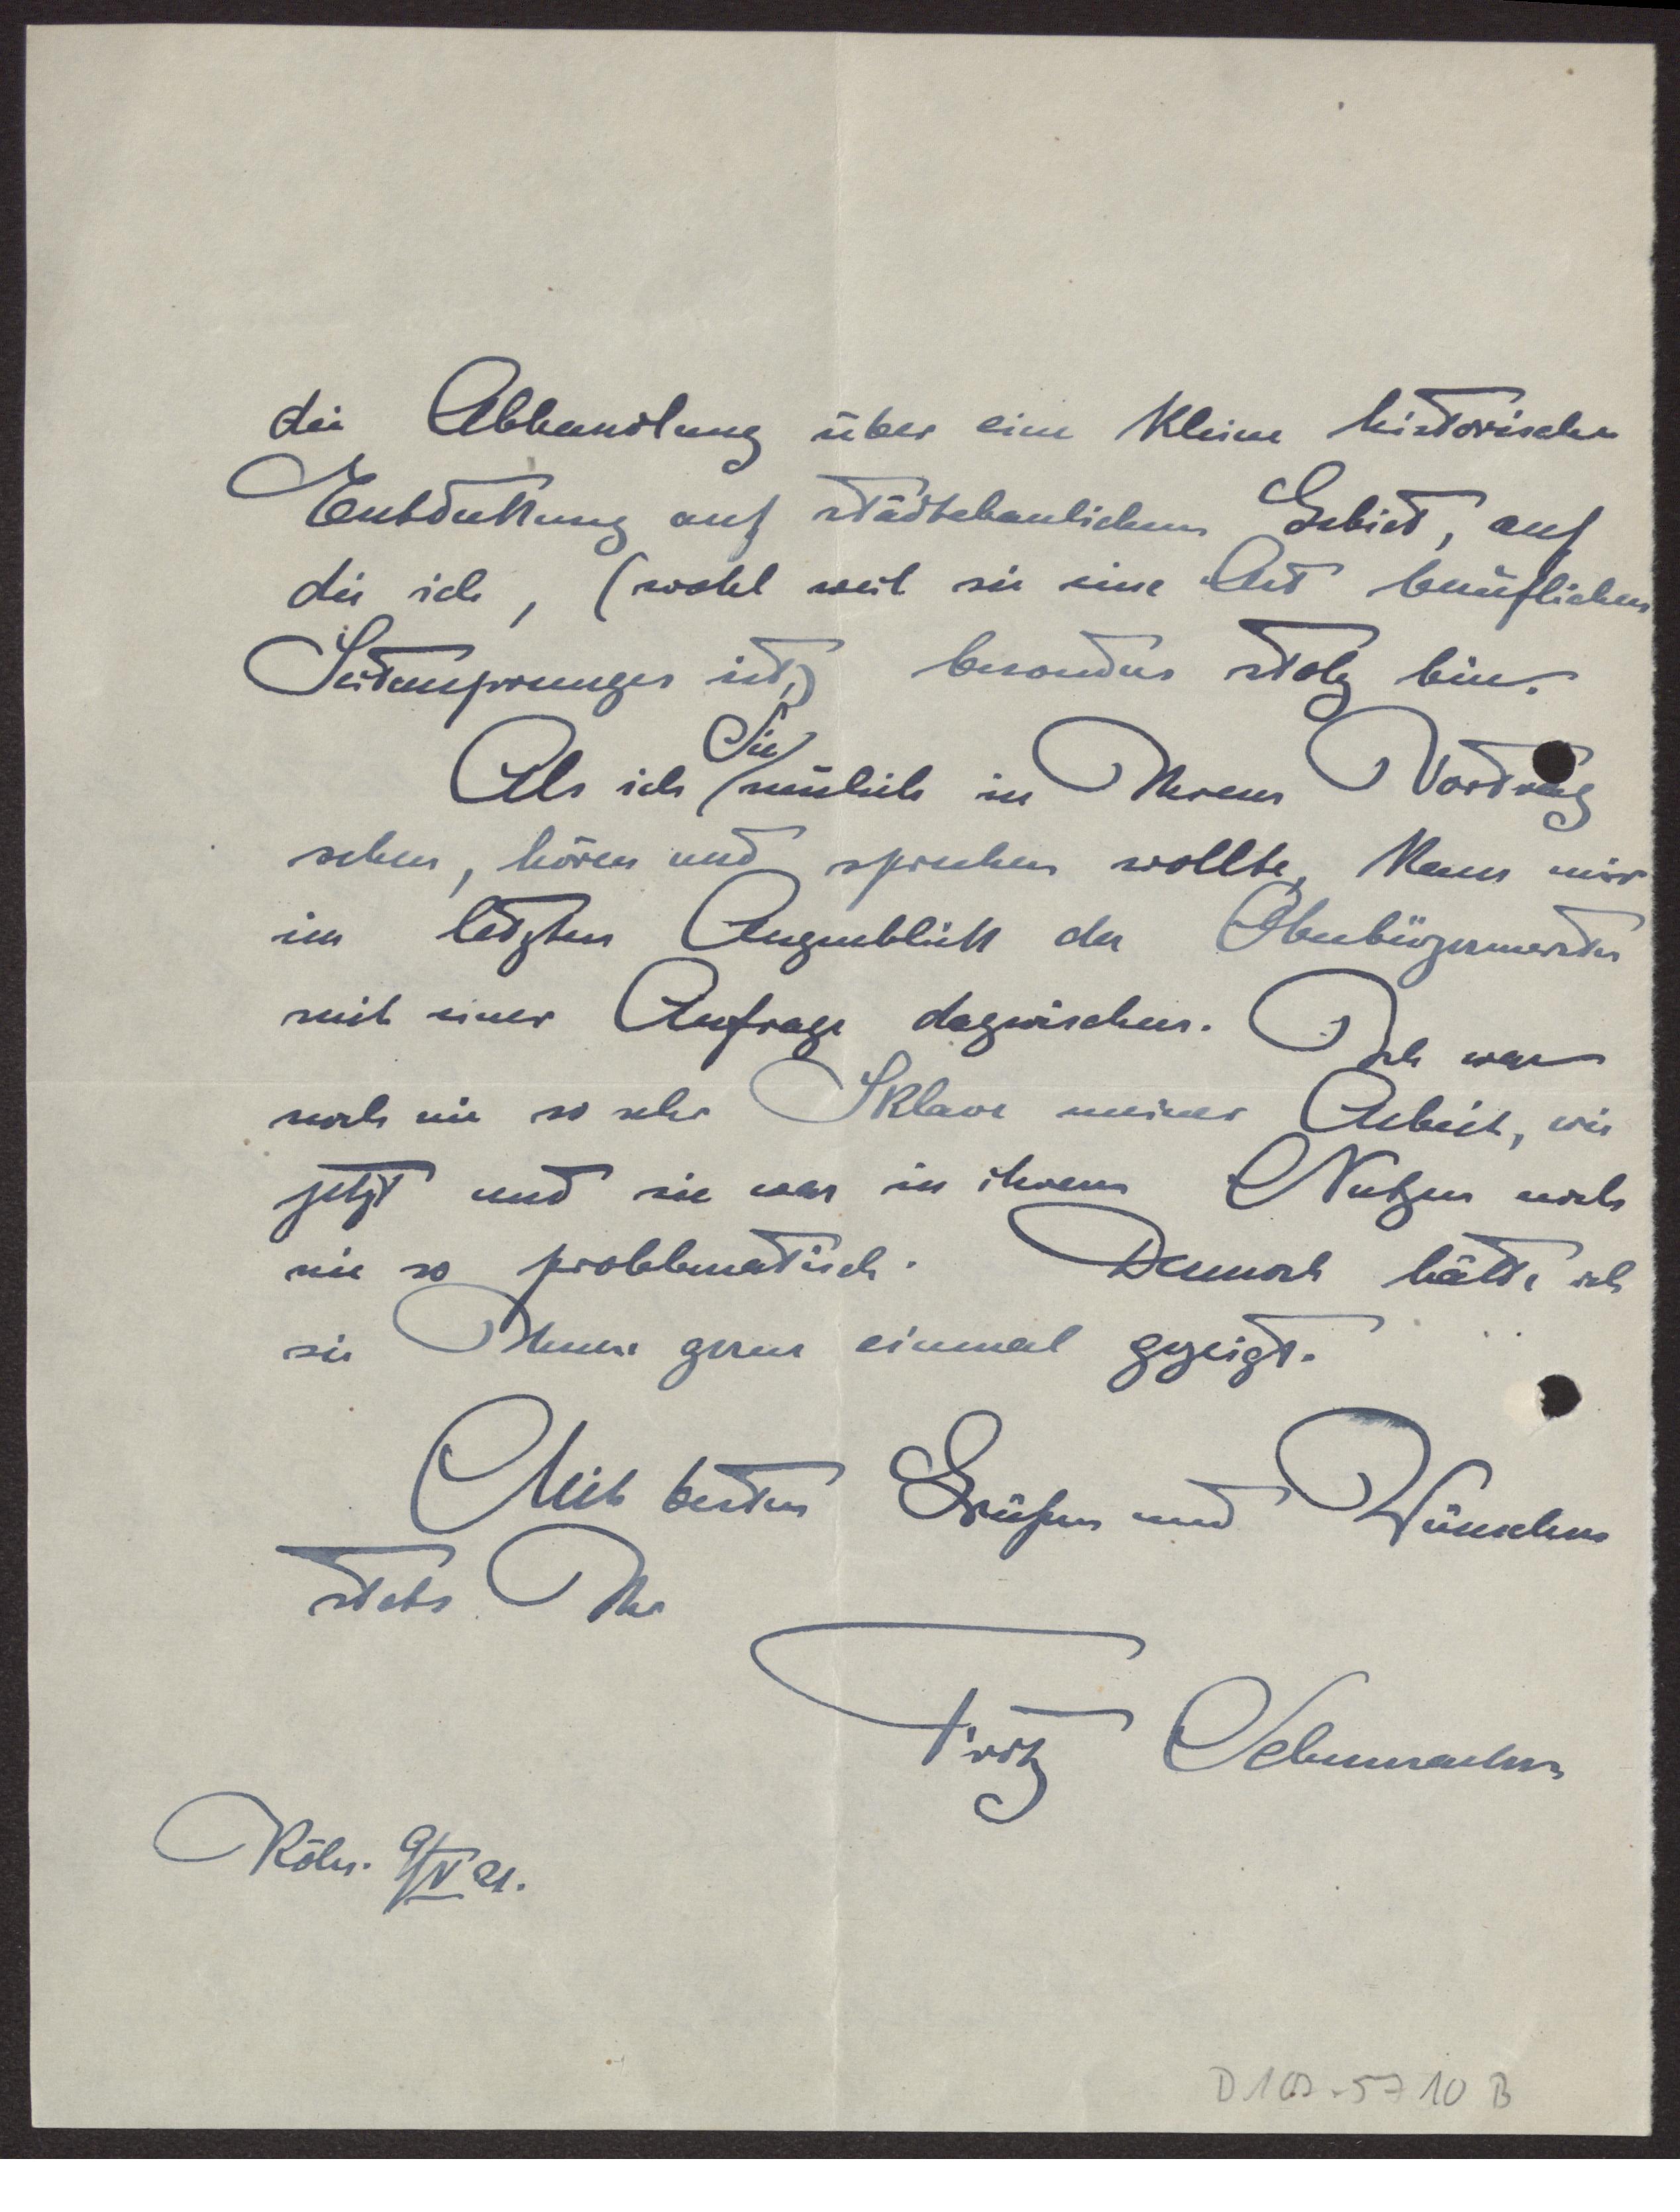 die Abhandlung über eine kleine historische
Entdeckung auf städtebaulichem Gebiet, auf
die ich, (wohl weil sie eine Art beruflichen
Seitensprunges ist,) besonders stolz bin.
Als ich Sie neulich in Ihrem Vortrag
sehen, hören und sprechen wollte, kam mir
im letzten Augenblick der Oberbürgermeister
mit einer Anfrage dazwischen. Ich war
noch nie so sehr Sklave meiner Arbeit, wie
jetzt und sie war in ihrem Nutzen noch
nie so problematisch. Dennoch hätte ich
sie Ihnen gerne einmal gezeigt.
Mit besten Grüßen und Wünschen
stets Ihr
Fritz Schumacher
Köln. 9/V 21.
D 102-5710 B